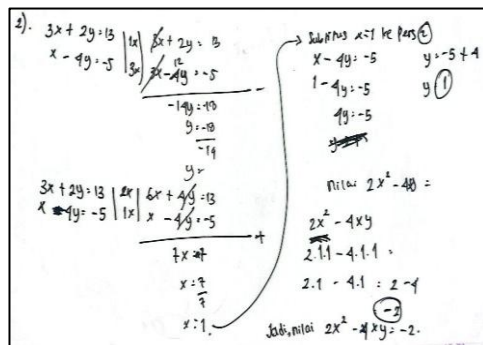 2).
3x + 2y = 13 | 1x | 3x + 2y = 13
x - 4y = -5 | 3x | 3x - 12y = -5
-
-14y = 18
y = -18
-14
y =
3x + 2y = 13 | 2x | 6x + 4y = 13
x 4y = -5 | 1x | x - 4y = -5
+
7x = 7
x = 7
7
x = 1.
x = 1 ke pers 2
x - 4y = -5
1 - 4y = -5
4y = -5
y = -5 + 4
y 1
nilai 2x² - 4y =
2x² - 4xy
2.1.1 - 4.1.1 =
2.1 - 4.1 = 2 - 4
-2
Jadi, nilai 2x² - 4xy = -2.